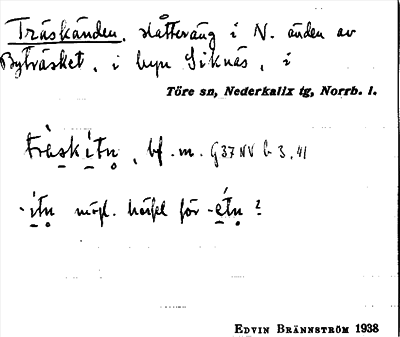 Träskänden, slåtteräng i N. änden av
Byträsket, i byn Siknäs, i
Töre sn, Nederkalix tg, Norrb. l.
träskítn̥, bf. m. G37 NV b 3, 41
-ítn̥ möjl. hörfel för -étn̥?
EDVIN BRÄNNSTRÖM 1938